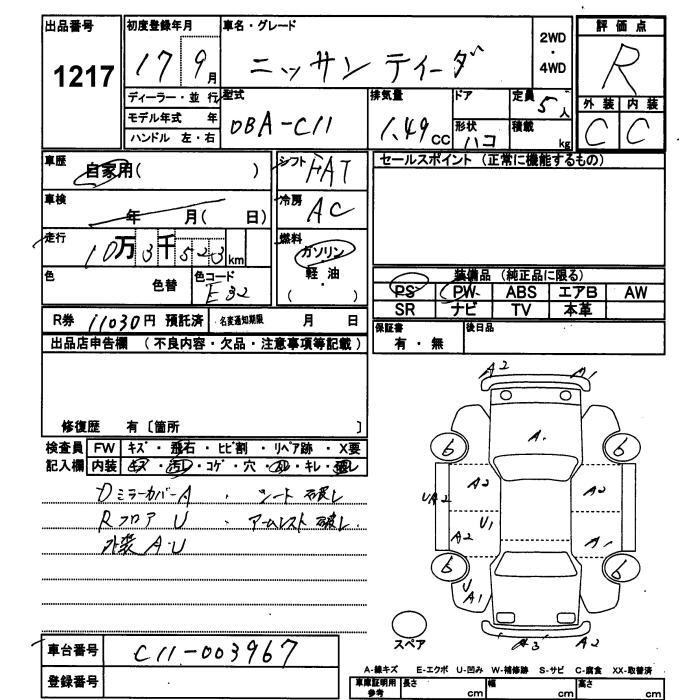 出品番号
1217
初度登録年月
17 9月
ディーラー・並行
モデル年式 年
ハンドル 左・右
車名・グレード
ニッサン ティーダ
2WD
・
4WD
型式
DBA-C11
排気量
1.49 CC
ドア
形状
ハコ
定員
5人
積載
kg
評価点
R
外装 内装
C C
車歴
自家用( )
車検
年 月( 日)
走行
10万3千523km
色
色替
色コード
E32
シフト
FAT
冷房
AC
燃料
ガソリン
・
軽油
( )
セールスポイント (正常に機能するもの)
装備品 (純正品に限る)
PS PW ABS エアB AW
SR ナビ TV 本革
保証書
有・無
後日品
R券 11030円 預託済 名変通知期限 月 日
出品店申告欄 (不良内容・欠品・注意事項等記載)
修復歴 有〔箇所 〕
検査員
記入欄
FW キズ・飛石・ヒビ割・リペア跡・X要
内装 キズ・汚レ・コゲ・穴・凹・キレ・破レ
Dミラーカバー A . シート破レ
Rフロア U . アームレスト破レ.
外装 A.U
A2 A1
6 A. 6
UA2 A2 A2
U1
A2 A1
6 6
U
A1
A3 A2
スペア
A-線キズ E-エクボ U-凹み W-補修跡 S-サビ C-腐食 XX-取替済
車台番号
C11-003967
登録番号
車庫証明用
参考
長さ cm
幅 cm
高さ cm